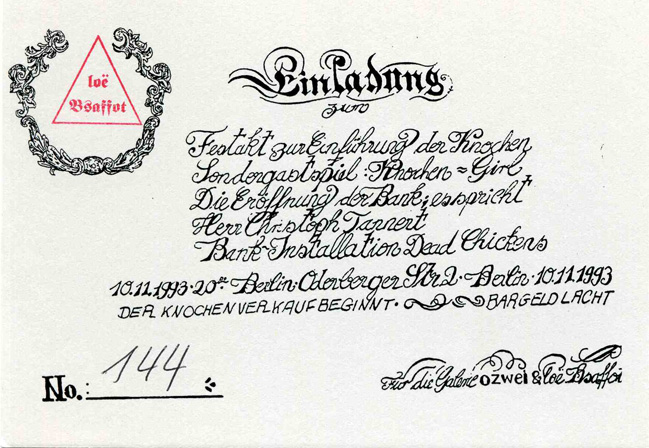 loë
Bsaffot
Einladung
zum
Festakt zur Einführung der Knochen
Sondergastspiel : Knochen = Girl
Die Eröffnung der Bank; es spricht
Herr Christoph Tannert
Bank-Installation Dead Chickens
10.11.1993 · 20ºº · Berlin · Oderberger Str 2 · Berlin · 10.11.1993
DER KNOCHENVERKAUF BEGINNT · BARGELD LACHT
No.: 144
Für die Galerie ozwei & loë Bsaffot